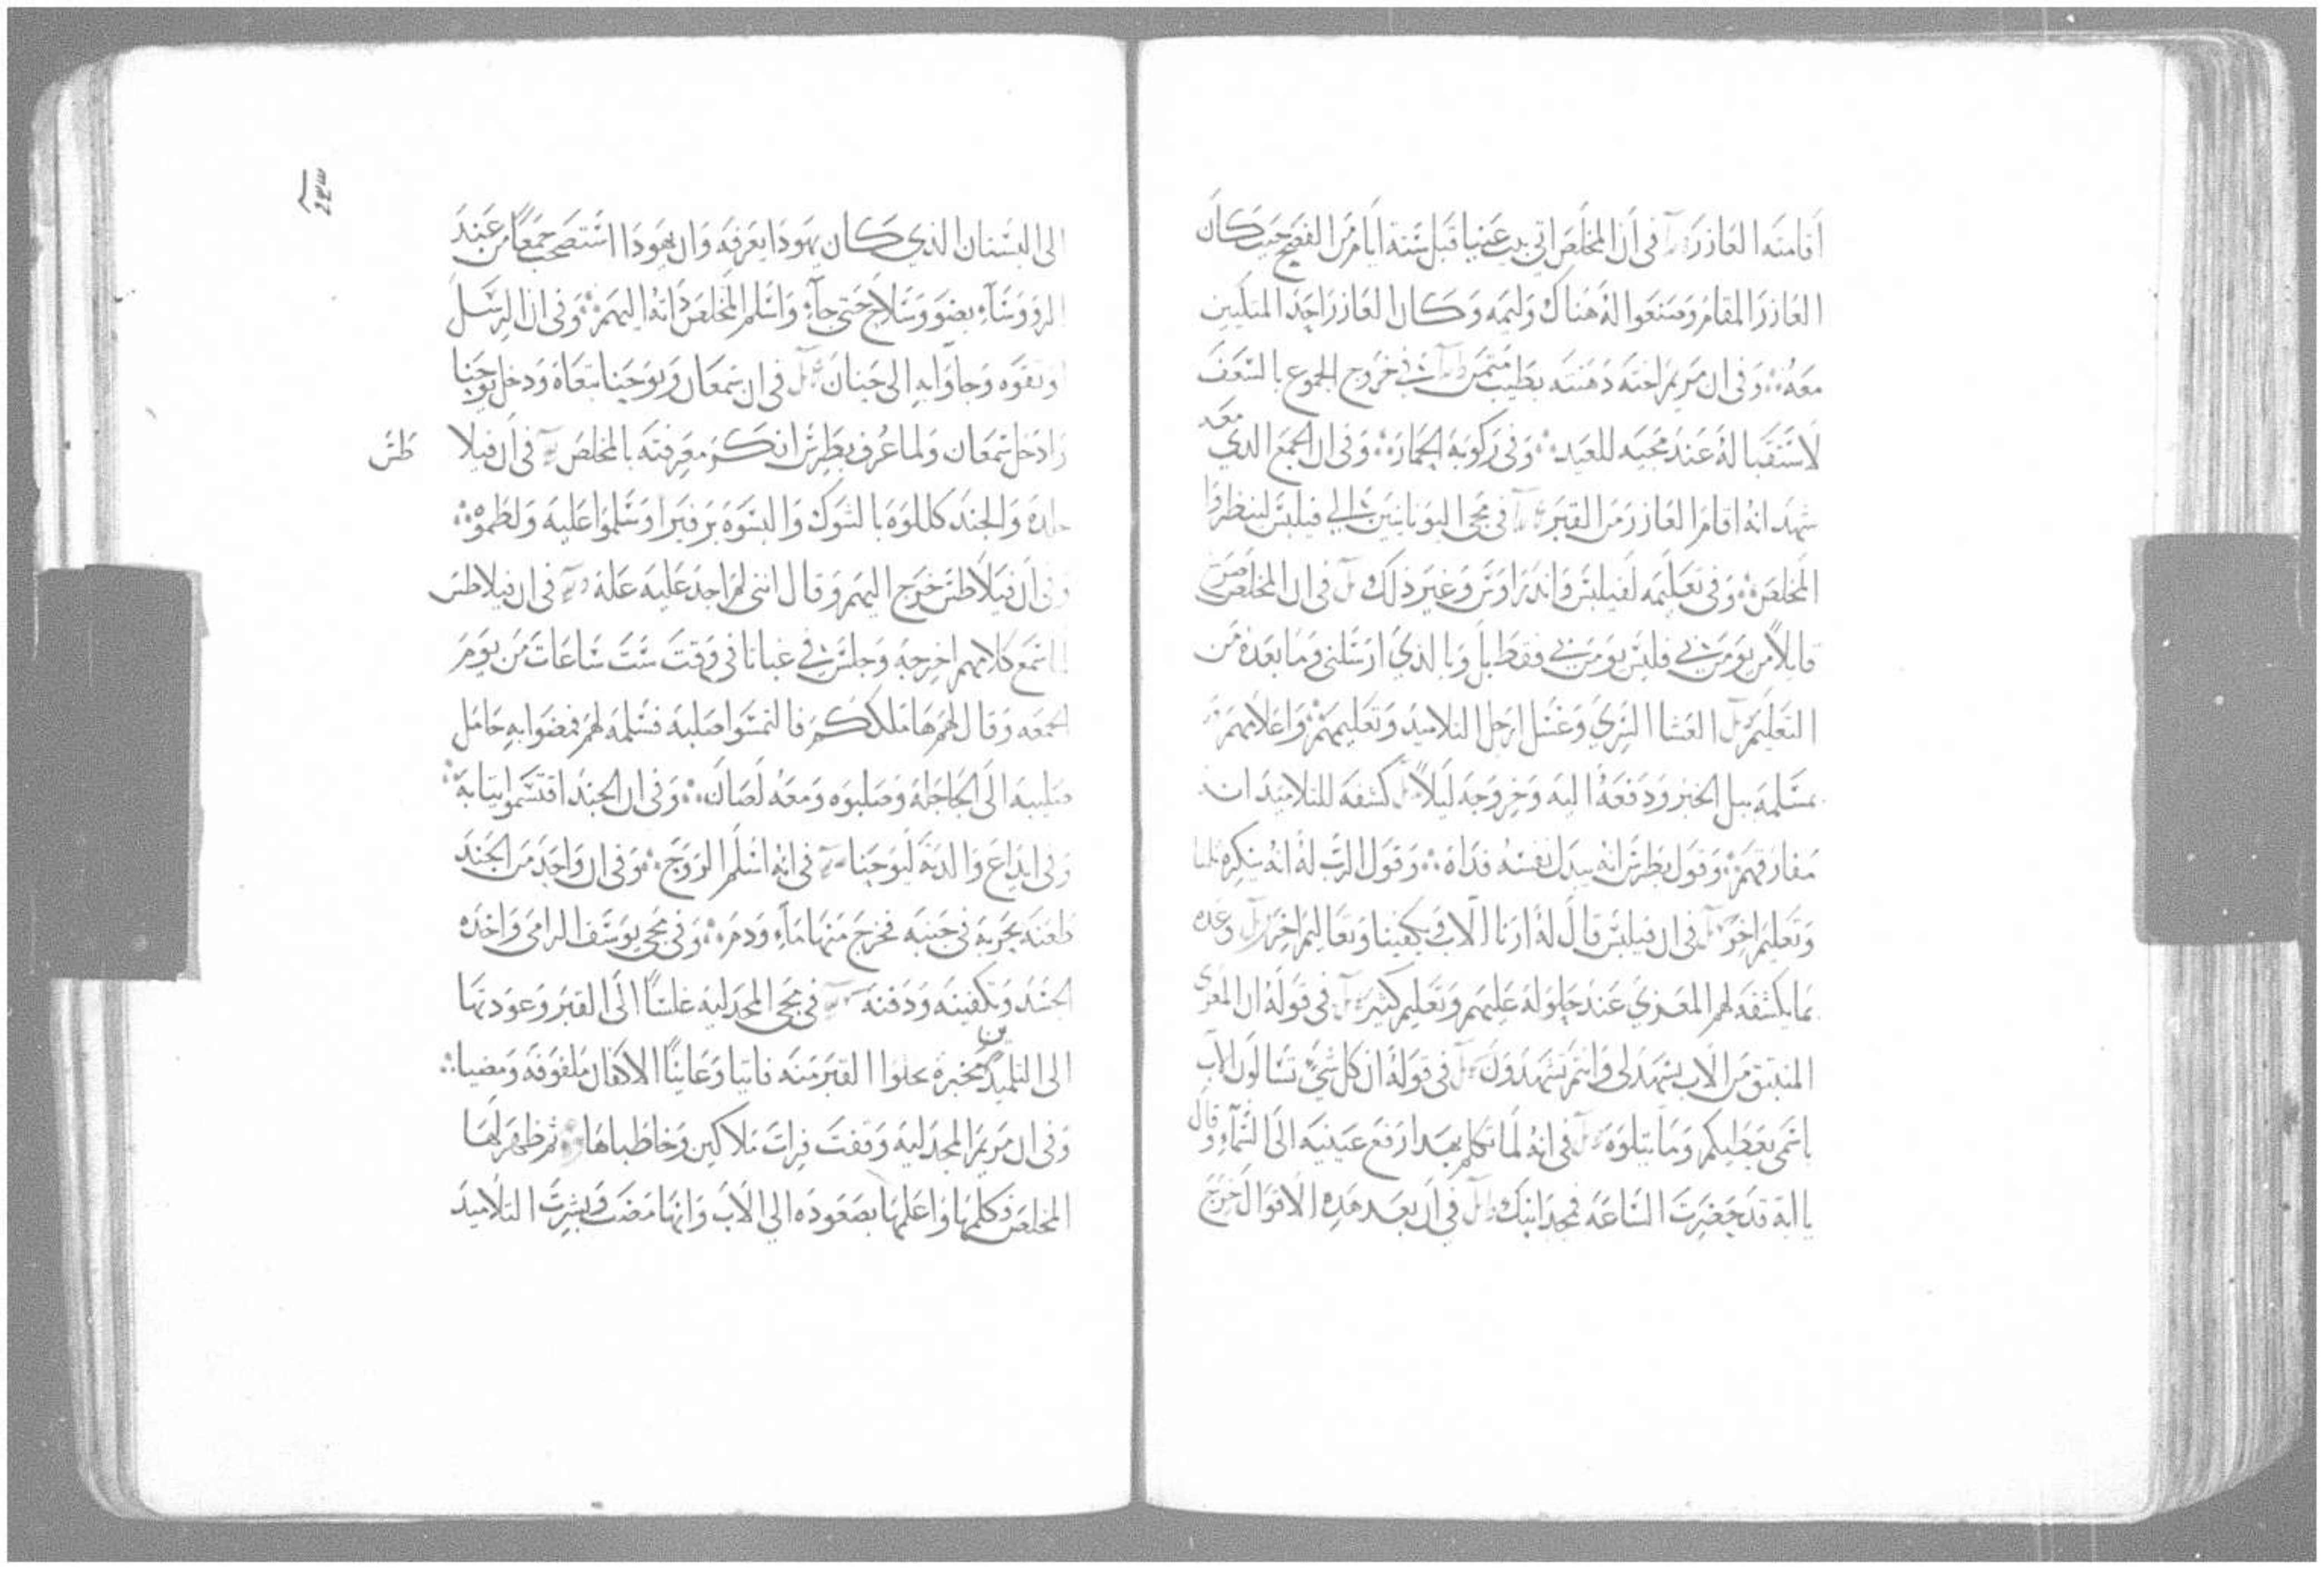 أقامته العازر في أن المخلص اتى بيت عنيا قبل ستة ايام من الفصح حيث كان
العازر المقام وصنعوا له هناك وليمه وكان العازر احد المتكيين
معه وفى ان مريم اخته دهنته بطيب في خروج الجموع بالسعف
لاستقباله عند مجيه للعيد وفى ركوبه الجحارة وفى ان الجمع الدي معه
شهد انه اقام العازر من القبر في مجى اليونانيين الي فيلبس لينظروا
المخلص وفى تعليمه لفيلبس واندراوس وغير ذلك في ان المخلص صرخ
قايلا من يومن بي فليس يومن بي فقط بل وبالذي ارسلنى وما بعده من
التعليم العشا السري وغسل ارجل التلاميد وتعليمهم واعلامهم
بمسلمه ببل الخبز ودفعه اليه وخروجه ليلا كشفه للتلاميد ان
مفارقهم وقول بطرس انه يبدل نفسه فداه وقول الرب له انه ينكره
وتعليم اخر في ان فيلبس قال له ارنا الاب ويكفينا وتعاليم اخر وعده
بما يكشفه لهم المعزي عند حلوله عليهم وتعليم كثير في قوله ان المعزى
المنبثق من الاب يشهد لي وانتم تشهدون في قوله ان كل شي تسالون الاب
باسمى يعطيكم وما يتلوه في انه لما تكلم بهدا رفع عينيه الى السماء وقال
يا ابة قد حضرت الساعة فمجد ابنك في ان بعد هده الاقوال خرج
الى البستان الذي كان يهودا يعرفه وان يهودا استصحب جمعا من عند
الروساء بضو وسلاح حتى جاء واسلم المخلص داته اليهم وفى ان الرسل
اوثقوه وجاوا به الى حنان في ان سمعان ويوحنا تبعاه ودخل يوحنا
وادخل سمعان ولما عرف بطرس انكر معرفته بالمخلص في ان فيلا طس
جلده والجند كللوه بالشوك والبسوه برفيرا وسلموا عليه ولطموه
وفى ان فيلاطس خرج اليهم وقال اننى لم اجد عليه علة في ان فيلاطس
لما سمع كلامهم اخرجه وجلس في غباثا في وقت ست ساعات من يوم
الجمعه وقال لهم ها ملككم فالتمسوا صلبه فسلمه لهم فمضوا به حامل
صليبه الى الجاجلة وصلبوه ومعه لصان وفى ان الجند اقتسموا ثيابه
وفى ايداع والدته ليوحنا في انه اسلم الروح وفى ان واحد من الجند
طعنه بحربة في جنبه فخرج منها ماء ودم وفى مجى يوسف الرامى واخده
الجسد وتكفينه ودفنه في مجى المجدلية غلسا الى القبر وعودتها
الى التلميدين مخبرة بخلوا القبر منه فاتيا وعاينا الاكفان ملفوفة ومضيا
وفى ان مريم المجدلية وقفت فرات ملاكين وخاطباها ثم ظهر لها
المخلص وكلمها واعلمها بصعوده الي الاب وانها مضت وبشرت التلاميد